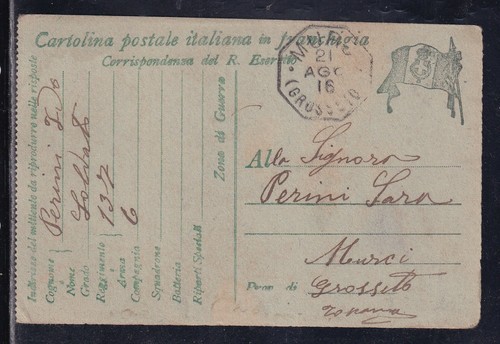 Cartolina postale italiana in franchigia
Corrispondenza del R. Esercito
21
AGO
16
(GROSSETO)
Indirizzo del mittente da riprodurre nelle risposte
Cognome Perini
Nome
Grado Soldato
Reggimento 137
Arma
Compagnia 6
Squadrone
Batteria
Riparti Speciali
Zona di Guerra
Alla Signora
Perini Sara
Murci
Prov. di Grosseto
Toscana